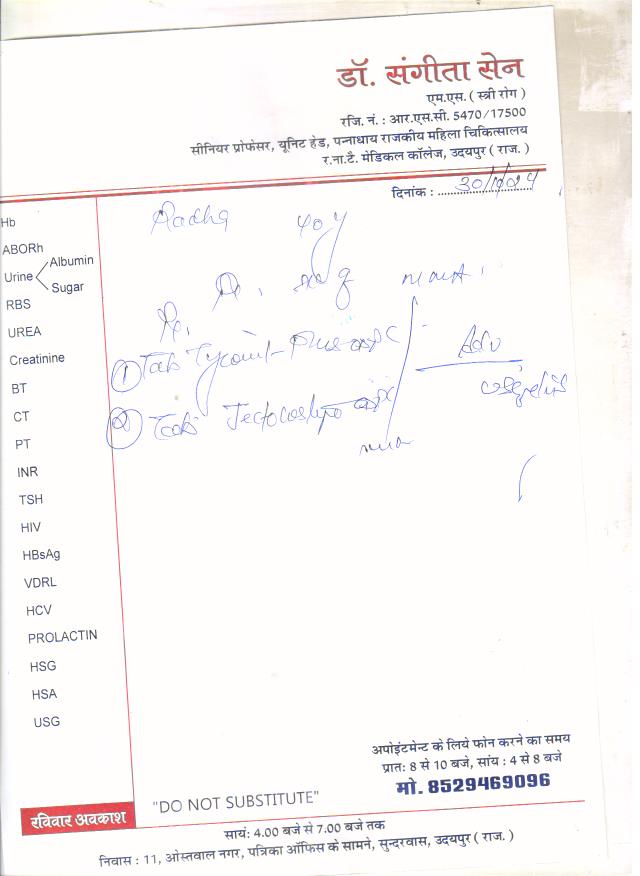 डॉ. संगीता सेन
एम.एस. ( स्त्री रोग )
रजि. नं. : आर.एस.सी. 5470/17500
सीनियर प्रोफेसर, यूनिट हेड, पन्नाधाय राजकीय महिला चिकित्सालय
र.ना.टै. मेडिकल कॉलेज, उदयपुर ( राज. )
दिनांक :
Hb
ABORh
Urine Albumin
Sugar
RBS
UREA
Creatinine
BT
CT
PT
INR
TSH
HIV
HBsAg
VDRL
HCV
PROLACTIN
HSG
HSA
USG
Radha 40 y
① Tab
② Tab
Adv
अपोइंटमेन्ट के लिये फोन करने का समय
प्रात: 8 से 10 बजे, सांय : 4 से 8 बजे
मो. 8529469096
रविवार अवकाश
"DO NOT SUBSTITUTE"
सायं: 4.00 बजे से 7.00 बजे तक
निवास : 11, ओस्तवाल नगर, पत्रिका ऑफिस के सामने, सुन्दरवास, उदयपुर ( राज. )